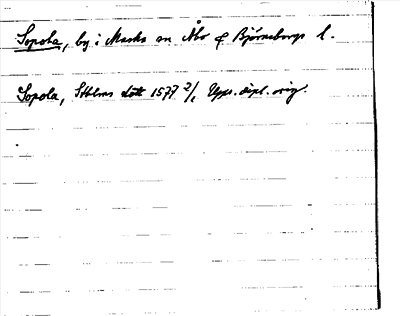 Sopola, by i Masku sn Åbo o Björneborgs l.
Sopola, Sthlms slott 1577 2/1 Upps. dipl. orig.